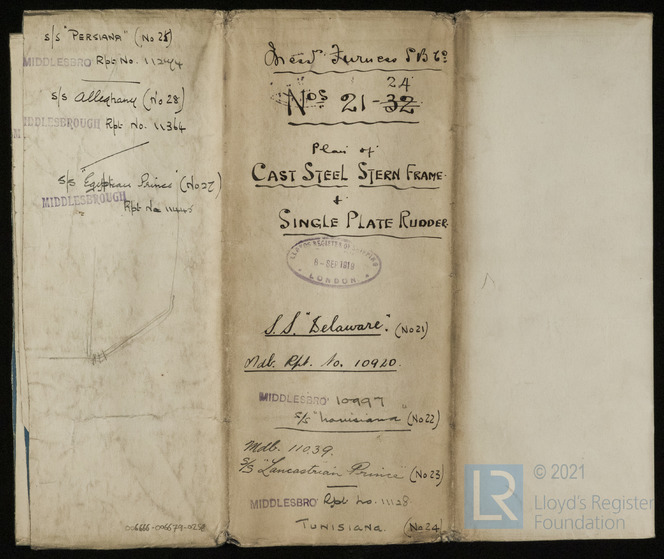 s/s "PERSIANA" (No 25)
MIDDLESBRO Rpt No. 11244
s/s Alleghany (No 28)
MIDDLESBROUGH Rpt. No. 11364
s/s "Egyptian Prince" (No 27)
MIDDLESBROUGH
Rpt No
006666-006679-0252
Messrs Furness S B Co
24
Nos 21-32
Plan of
CAST STEEL STERN FRAME
+
SINGLE PLATE RUDDER.
LLOYD'S REGISTER OF SHIPPING
8-SEP 1919
LONDON.
S.S. "Delaware". (No 21)
Mdb. Rpt. No. 10920.
MIDDLESBRO' 10997
s/s "Louisiana" (No 22)
Mdb. 11039.
S/S "Lancastrian Prince" (No 23)
MIDDLESBRO' Rpt No. 11128
TUNISIANA. (No 24)
LR
© 2021
Lloyd's Register
Foundation